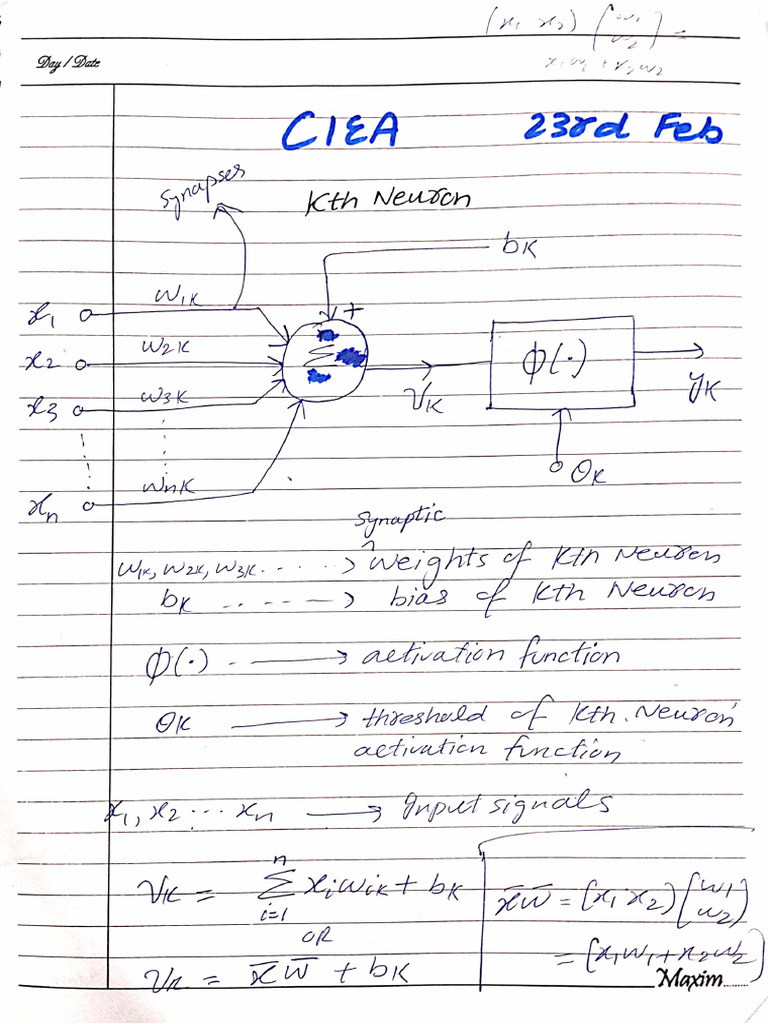 (x1 x2) (w1
w2) =
x1w1 + x2w2
Day / Date
CIEA 23rd Feb
Synapses
Kth Neuron
bK
x1 w1K +
x2 w2K Σ ϕ(·)
x3 w3K vK yK
θK
xn wnK
synaptic
w1K, w2K, w3K ·····> ^ weights of Kth Neuron
bK ·····> bias of Kth Neuron
ϕ(·) ·——> activation function
θK ——> threshold of Kth Neuron
activation function
x1, x2 ··· xn ——> Input signals
vK = n Σ i=1 xi wiK + bK
OR
vK = x̄ w̄ + bK
x̄w̄ = (x1 x2) (w1
w2)
= (x1w1 + x2w2)
Maxim